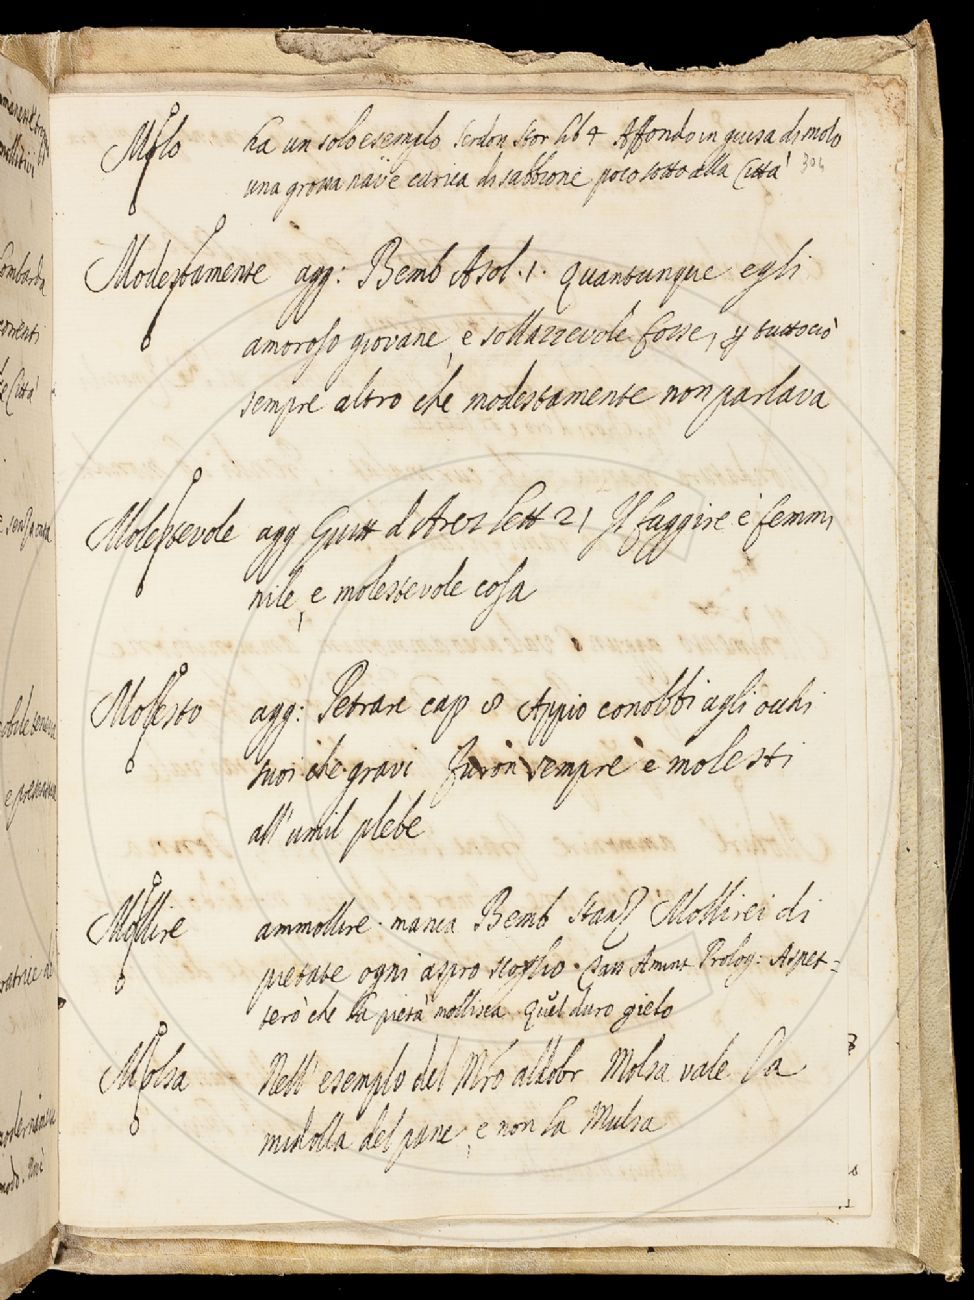 Molo ha un solo esempio Serdon Stor lib 4 Affondo in guisa di molo
una grossa nave carica di sabbione poco sotto alla Città 304
Modestamente agg: Bemb Asol. 1. quantunque egli
amoroso giovane, e sollazzevole fosse, p tuttociò
sempre altro che modestamente non parlava
Molestevole agg Guitt d Arez lett 21 Il fuggire è femmi
nile, e molestevole cosa
Molesto agg: Petrarc cap 8 Appio conobbi agli occhi
suoi che gravi furòn sempre è molesti
all'umil plebe
Mollire ammollire. manca Bemb Stanz Mollirei di
pietate ogni aspro scoglio. Tass Amint Prolog: Aspet=
terò che la pietà mollisca quel duro gielo
Molsa Nell'esempio del Mro aldobr Molsa vale la
midolla del pane, e non la Mulsa